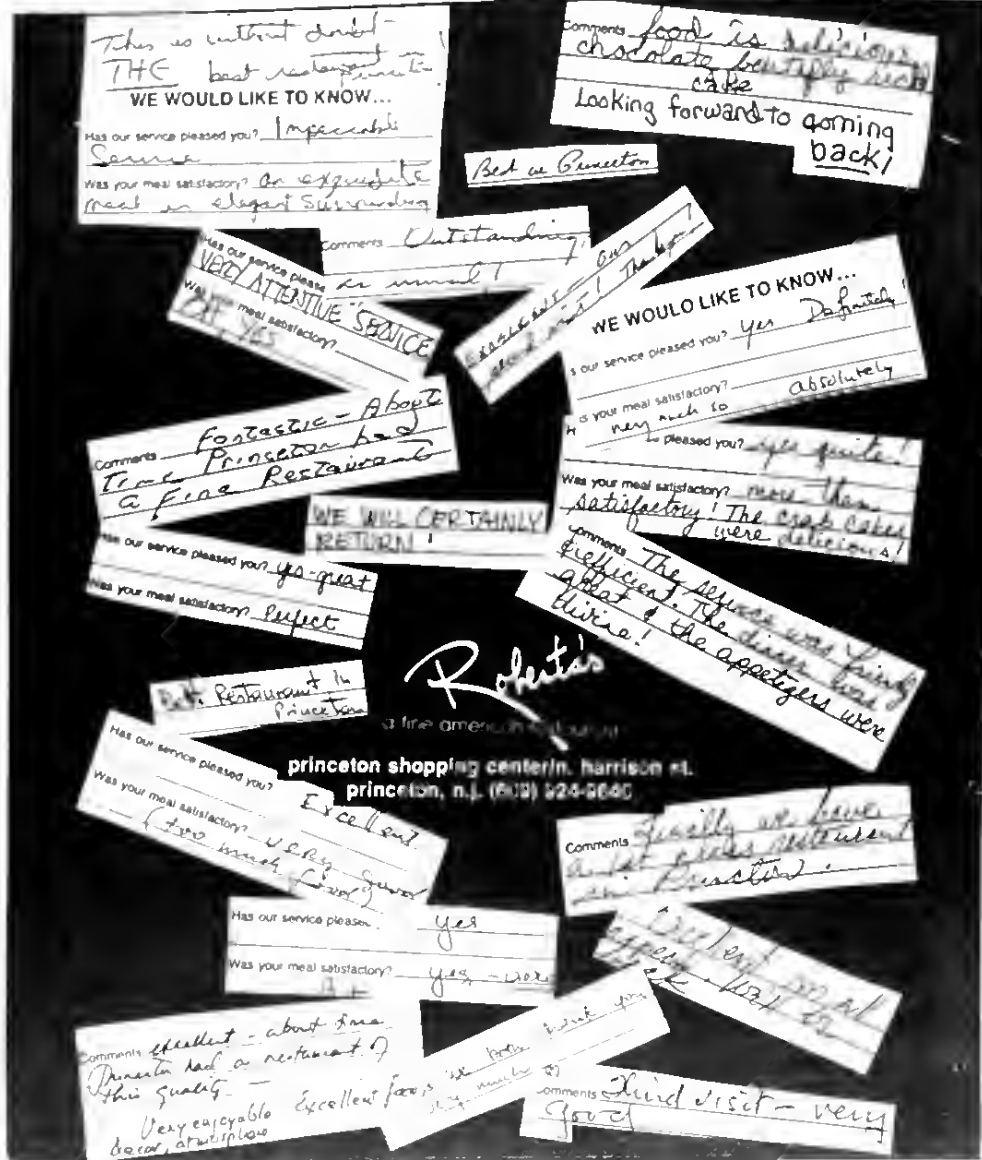 This is without doubt -
THE best restaurant in
Princeton!
WE WOULD LIKE TO KNOW...
Has our service pleased you? Impeccable
Service
Was your meal satisfactory? An exquisite
meal in elegant surrounding
Comments food is delicious
chocolate
cake
Looking forward to coming
back!
Best in Princeton
Comments Outstanding,
as usual!
Has our service please
VERY ATTENTIVE "SERVICE
Was your meal satisfactory?
YES
our
visit! Thank you
WE WOULD LIKE TO KNOW...
s our service pleased you? Yes Definitely!
is your meal satisfactory?
very much so absolutely
Comments Fantastic - About
Time Princeton had
a Fine Restaurant
pleased you? yes quite!
Was your meal satisfactory? more than
satisfactory! The crab cakes
were delicious!
WE WILL CERTAINLY
RETURN!
Has our service pleased you? yes-great
Was your meal satisfactory? Perfect
omments The service was
efficient. The dinner was
great & the appetizers were
divine!
Roberta's
a fine american restaurant
Best Restaurant in
Princeton
princeton shopping center/n. harrison st.
princeton, n.j. (609) 924-9640
Has our service pleased you?
Excellent
Was your meal satisfactory? very
(too much
Comments Finally we have
a 1st class restaurant
in Princeton.
Has our service please yes
Was your meal satisfactory? yes - were
Excellent meal
back
Comments excellent - about time
Princeton had a restaurant of
this quality -
Very enjoyable
decor, atmosphere
Excellent food,
we both thank you
Comments Third visit - very
good